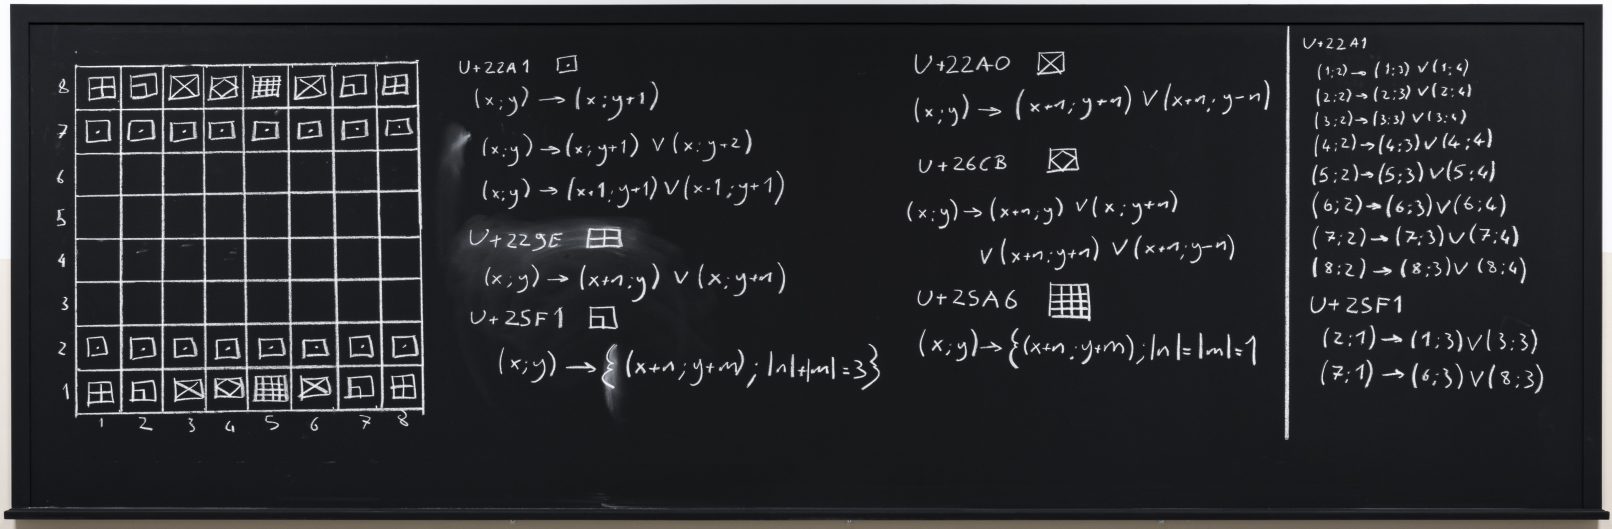 8
7
6
5
4
3
2
1
1 2 3 4 5 6 7 8
U+22A1 ⊡
(x;y) → (x;y+1)
(x;y) → (x;y+1) ∨ (x;y+2)
(x;y) → (x+1;y+1) ∨ (x-1;y+1)
U+229E ⊞
(x;y) → (x+n;y) ∨ (x;y+n)
U+25F1 ◱
(x;y) → {(x+n;y+m); |n|+|m|=3}
U+22A0 ⊠
(x;y) → (x+n;y+n) ∨ (x+n;y-n)
U+26CB ⛋
(x;y) → (x+n;y) ∨ (x;y+n)
∨ (x+n;y+n) ∨ (x+n;y-n)
U+25A6 ▦
(x;y) → {(x+n;y+m); |n|=|m|=1
U+22A1
(1;2) → (1;3) ∨ (1;4)
(2;2) → (2;3) ∨ (2;4)
(3;2) → (3;3) ∨ (3;4)
(4;2) → (4;3) ∨ (4;4)
(5;2) → (5;3) ∨ (5;4)
(6;2) → (6;3) ∨ (6;4)
(7;2) → (7;3) ∨ (7;4)
(8;2) → (8;3) ∨ (8;4)
U+25F1
(2;1) → (1;3) ∨ (3;3)
(7;1) → (6;3) ∨ (8;3)